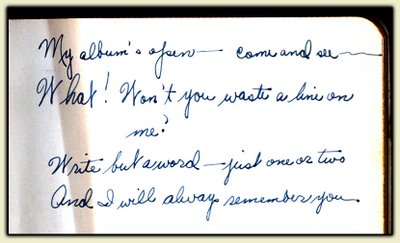 My album's open— come and see—
What! Won't you waste a line on
me?
Write but a word—just one or two
And I will always remember you.